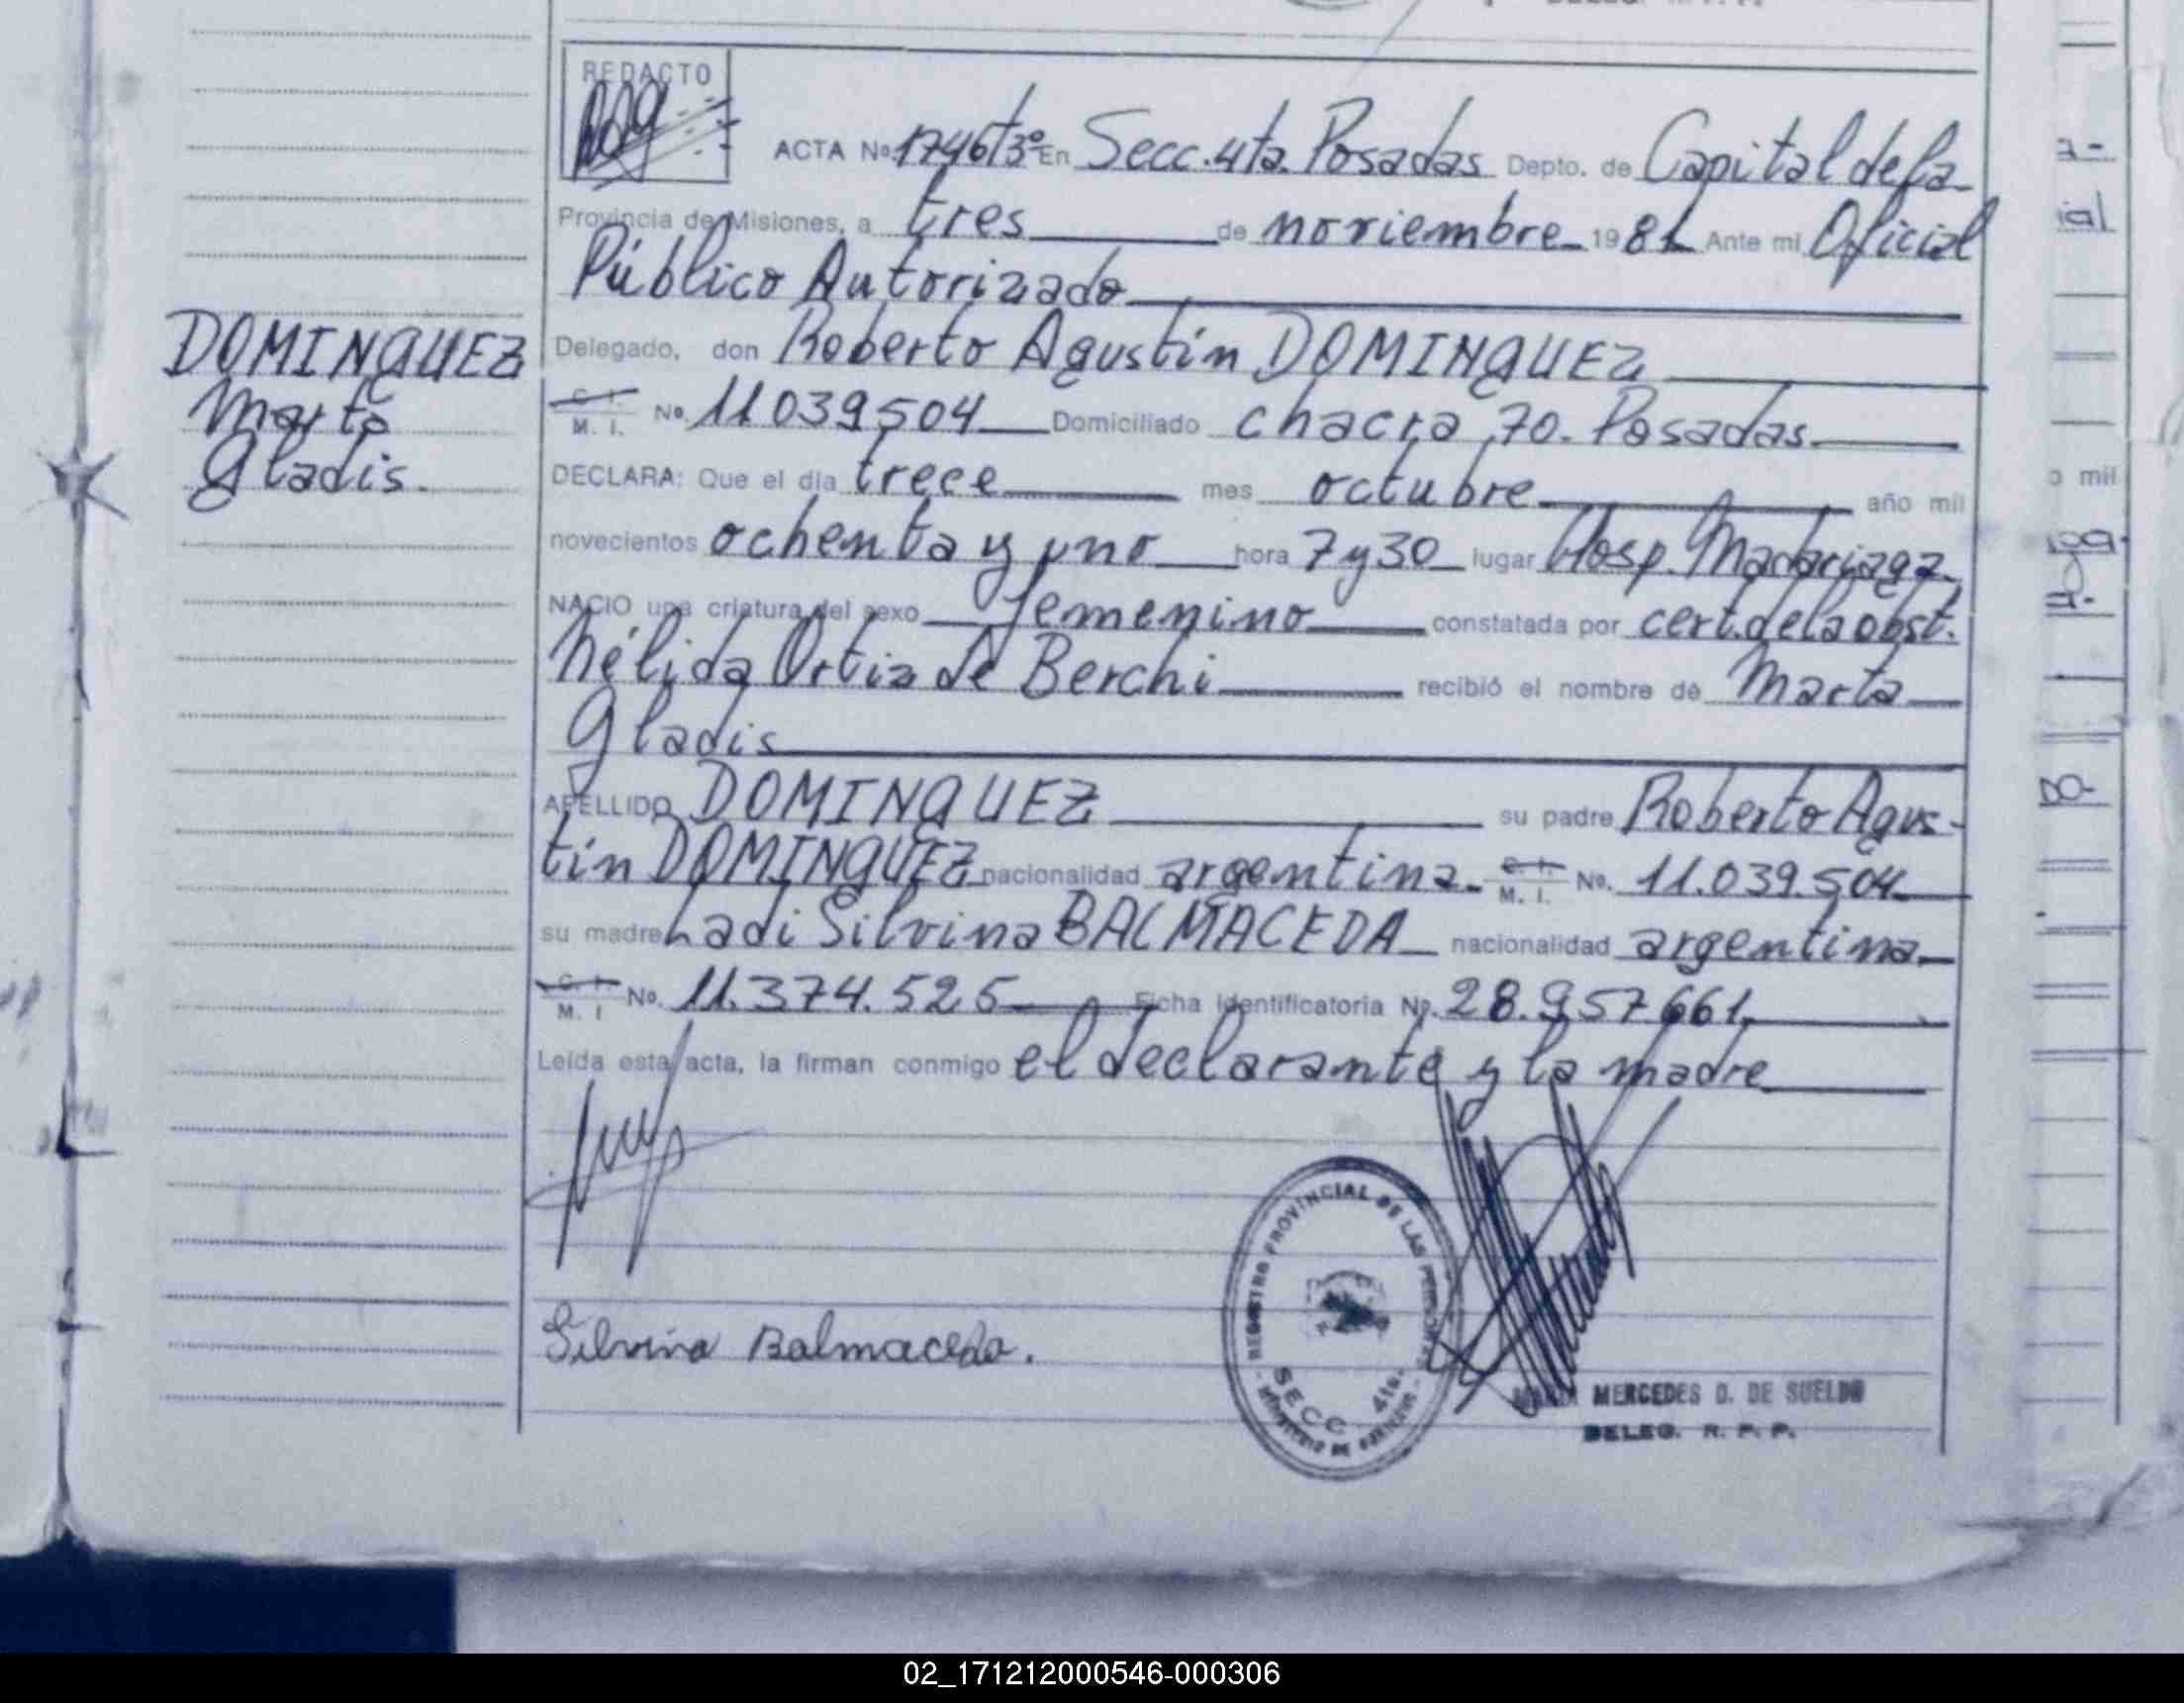 REDACTO
ACTA No. 1746 T3º En Secc. 4ta. Posadas Depto. de Capital de la
Provincia de Misiones, a tres de noviembre 1981 Ante mi Oficial
Público Autorizado
DOMINGUEZ
Marta
Gladis.
Delegado, don Roberto Agustín DOMINGUEZ
C. I.
M. I. No. 11039504 Domiciliado chacra 70. Posadas.
DECLARA: Que el día trece mes octubre año mil
novecientos ochenta y uno hora 7 y 30 lugar Hosp. Madariaga
NACIO una criatura del sexo femenino constatada por cert. de la obst.
Nélida Ortiz de Berchi recibió el nombre de Marta
Gladis
APELLIDO DOMINGUEZ su padre Roberto Agus-
tín DOMINGUEZ nacionalidad argentina. C. I.
M. I. No. 11.039.504
su madre Ladi Silvina BALMACEDA nacionalidad argentina
C. I.
M. I No. 11.374.525 Ficha Identificatoria No. 28.957661
Leída esta acta, la firman conmigo el declarante y la madre
Silvina Balmaceda.
REGISTRO PROVINCIAL DE LAS PERSONAS
SECC. 4ta.
MERCEDES D. DE SUELDO
DELEG. R. P. P.
ial
o mil
DO-
02_171212000546-000306